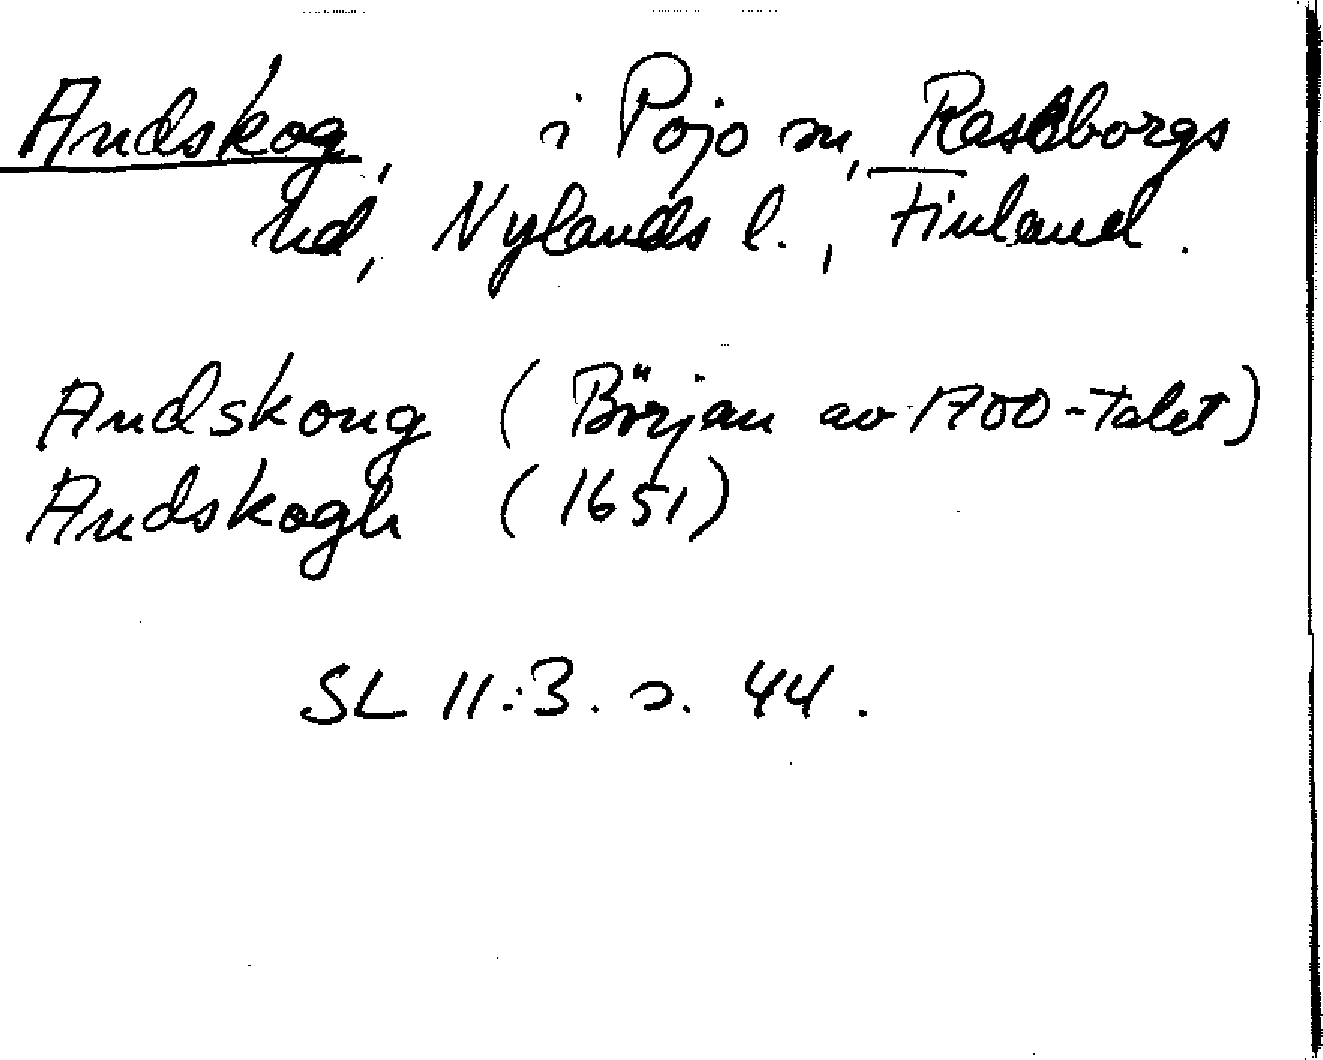 Andskog, i Pojo sn, Raseborgs
hd, Nylands l., Finland.
Andskoug (Början av 1700-talet)
Andskogh (1651)
SL 11:3. s. 44.